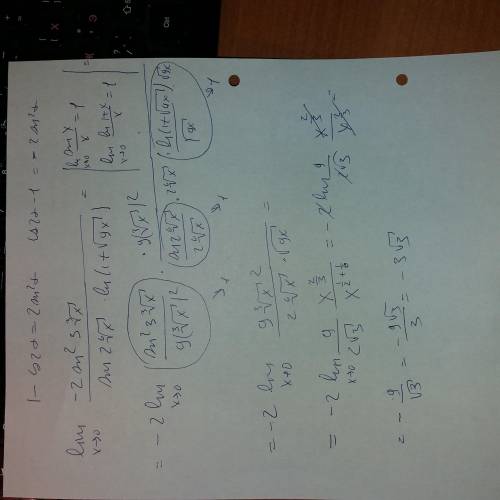 1 - cos2α = 2sin²α   cos2α - 1 = -2sin²α
lim x→0 (-2 sin² 3∛x) / (sin 2⁶√x · ln(1+√9x)) = | lim x→0 sin x / x = 1   lim x→0 ln(1+x) / x = 1 | =
= -2 lim x→0 ((sin² 3∛x) / (9(∛x)²) · 9(∛x)²) / ((sin 2⁶√x) / (2⁶√x) · 2⁶√x · (ln(1+√9x)) / (√9x) · √9x)
→1 →1 →1
= -2 lim x→0 (9(∛x)²) / (2⁶√x · √9x) =
= -2 lim x→0 9/(2√3) x^(2/3) / x^(1/2+1/6) = -2 lim 9/(2√3) x^(2/3) / x^(2/3) =
= -9/√3 = -9√3/3 = -3√3